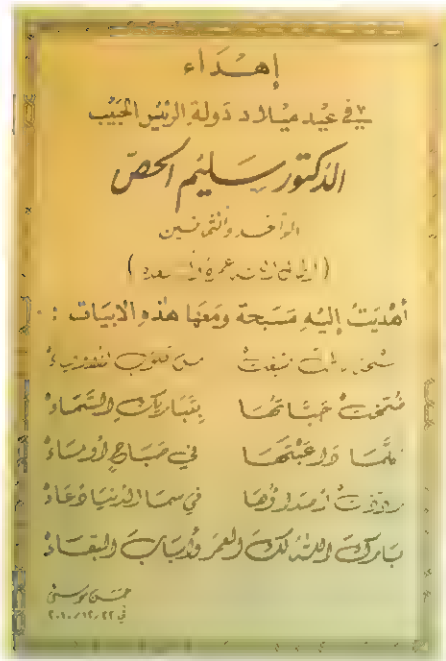 إهداء
في عيد ميلاد دولة الرئيس الحبيب
الدكتور سليم الحص
الواحد والثمانين
أهديتُ إليه مسبحة ومعها هذه الأبيات :
من قلوب
حباتها بتباريك السماء
كلما داعبتها في صباح أو مساء
رددت أصداؤها في سما الدنيا دعاء
بارك الله لك العمر وأسباب البقاء
في ٢٠١٠/١٢/٢٢